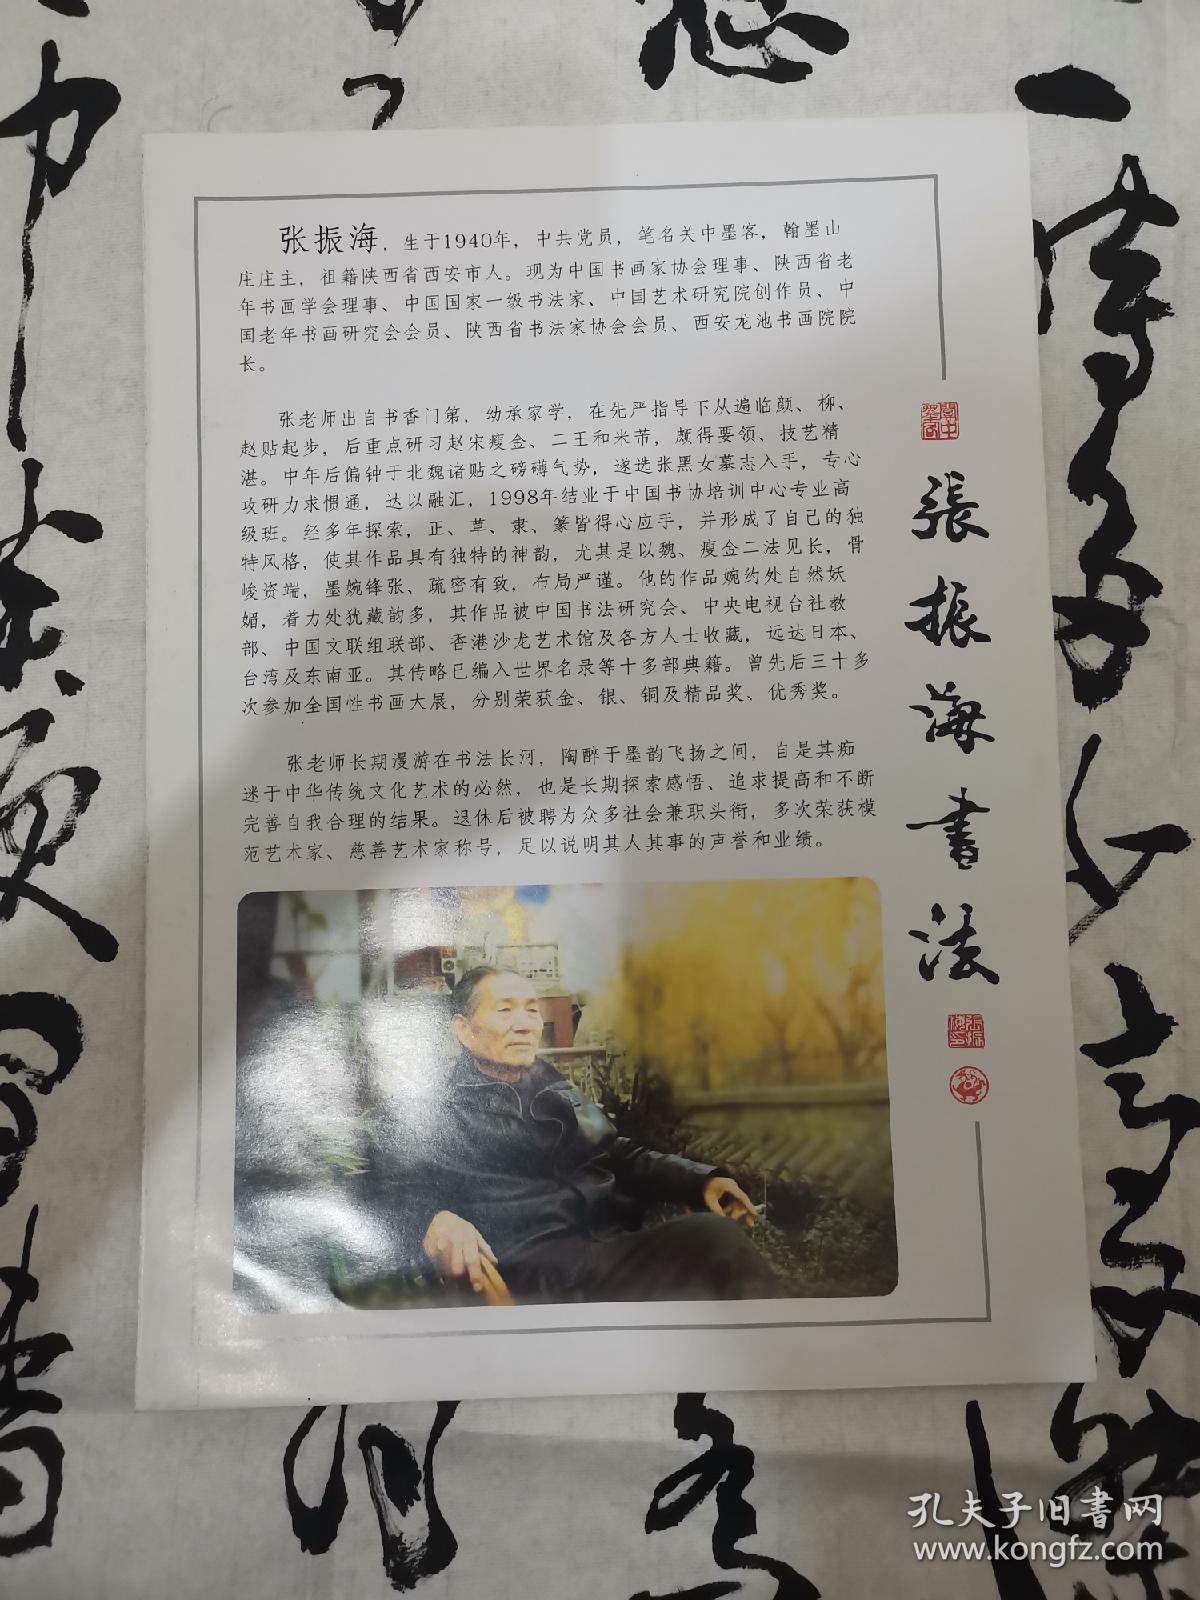 张振海，生于1940年，中共党员，笔名关中墨客，翰墨山
庄庄主，祖籍陕西省西安市人。现为中国书画家协会理事、陕西省老
年书画学会理事、中国国家一级书法家、中国艺术研究院创作员、中
国老年书画研究会会员、陕西省书法家协会会员、西安龙池书画院院
长。
张老师出自书香门第，幼承家学，在先严指导下从遍临颜、柳、
赵贴起步，后重点研习赵宋瘦金、二王和米芾，颇得要领、技艺精
湛。中年后偏钟于北魏诸贴之磅礴气势，遂选张黑女墓志入手，专心
攻研力求惯通，达以融汇，1998年结业于中国书协培训中心专业高
级班。经多年探索，正、草、隶、篆皆得心应手，并形成了自己的独
特风格，使其作品具有独特的神韵，尤其是以魏、瘦金二法见长，骨
峻资端，墨婉锋张、疏密有致，布局严谨。他的作品婉约处自然妖
媚，着力处犹藏韵多，其作品被中国书法研究会、中央电视台社教
部、中国文联组联部、香港沙龙艺术馆及各方人士收藏，远达日本、
台湾及东南亚。其传略已编入世界名录等十多部典籍。曾先后三十多
次参加全国性书画大展，分别荣获金、银、铜及精品奖、优秀奖。
张老师长期漫游在书法长河，陶醉于墨韵飞扬之间，自是其痴
迷于中华传统文化艺术的必然，也是长期探索感悟、追求提高和不断
完善自我合理的结果。退休后被聘为众多社会兼职头衔，多次荣获模
范艺术家、慈善艺术家称号，足以说明其人其事的声誉和业绩。
張振海書法
孔夫子旧书网
www.kongfz.com